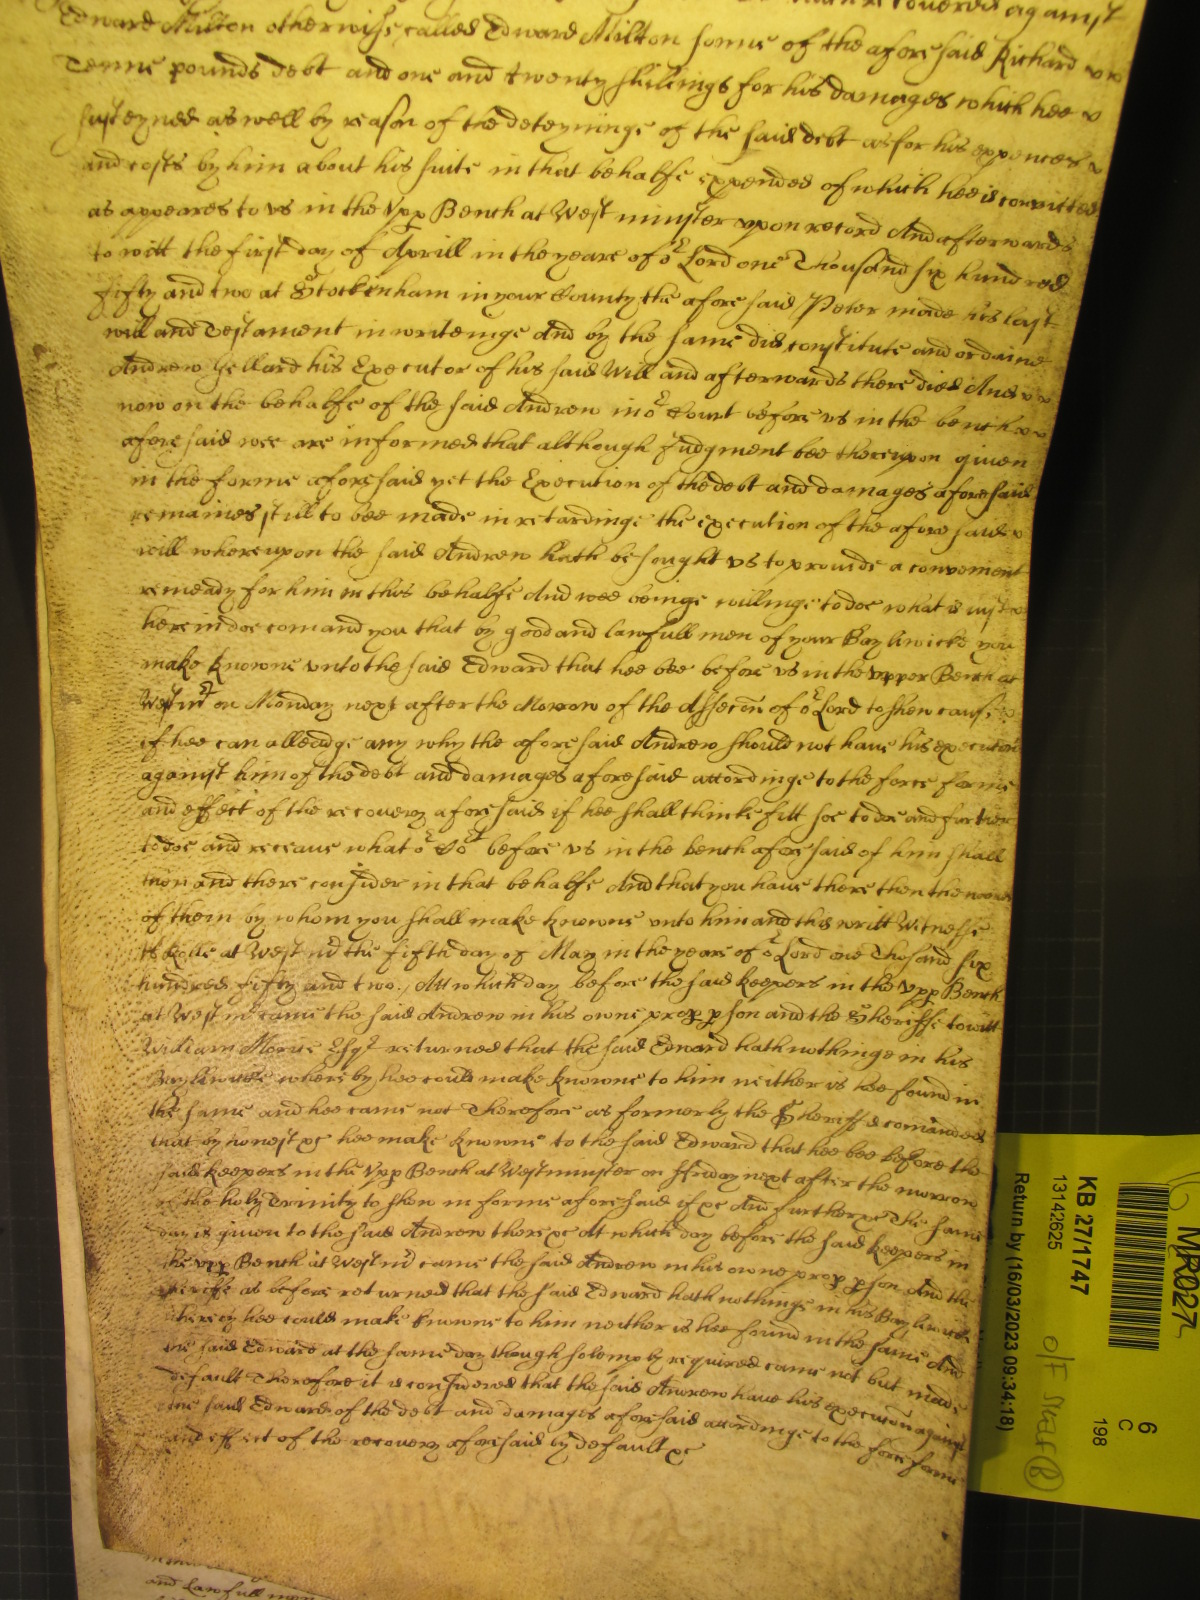 against
Edward Milton otherwise called Edward Milton sonne of the afore said Richard
Tenne pounds debt and one and twenty shillings for his damages which hee
susteyned as well by reason of the deteyninge of the said debt as for his expences
and costs by him about his suite in that behalfe expended of which hee is convicted
as appeares to vs in the Vpp Bench at Westminster vpon record And afterwards
to witt the first day of Aprill in the yeare of or Lord one Thousand six hundred
fifty and two at Stockenham in your County the afore said Peter made his last
will and Testament in writeinge and by the same did constitute and ordaine
Andrew Hellard his Executor of his said Will and afterwards there died And
now on the behalfe of the said Andrew in or Court before vs in the bench
afore said wee are informed that although Judgment bee thereupon given
in the forme aforesaid yet the Execution of the debt and damages aforesaid
remaines still to bee made in retardinge the execution of the afore said
will whereupon the said Andrew hath besought vs to provide a convenient
remeady for him in this behalfe And wee beinge willinge to doe what is iust
herein doe comand you that by good and lawfull men of your Bayliwicke you
make knowne vnto the said Edward that hee bee before vs in the vpper Bench at
Westmr on Monday next after the Morrow of the Assecon of or Lord to shew cause
if hee can alleadge any why the afore said Andrew should not have his execution
against him of the debt and damages aforesaid accordinge to the force forme
and effect of the recovery aforesaid if hee shall thinke fitt soe to doe and further
to doe and receave what or Cort before vs in the bench aforesaid of him shall
then and there consider in that behalfe And that you have there then the names
of them by whom you shall make knowne vnto him and this writt Witnesse
H Rolle at Westmr the fifth day of May in the yeare of or Lord one Thosand six
hundred fifty and two. Att which day before the said keepers in the Vpp Bench
at Westmr came the said Andrew in his owne propp pson and the Sheriffe to witt
William Morrie Esqr returned that the said Edward hath nothinge in his
Baylwicke whereby hee could make knowne to him neither is hee found in
the same and hee came not Therefore as formerly the Sheriffe is comanded
that by honest &c hee make knowne to the said Edward that hee bee before the
said keepers in the Vpp Bench at Westminster on Friday next after the morrow
of the holy Trinity to shew in forme aforesaid if &c And further &c The same
day is given to the said Andrew there &c At which day before the said keepers in
the vpp Bench at Westmr came the said Andrew in his owne propp pson And the
Sheriffe as before returned that the said Edward hath nothinge in his Baylwicke
whereby hee could make knowne to him neither is hee found in the same And
the said Edward at the same day though solemply required came not but made
default Therefore it is considered that the said Andrew have his execution against
the said Edward of the debt and damages aforesaid accordinge to the force forme
and effect of the recovery aforesaid by default &c
and lawfull men
KB 27/1747
13142625
Return by (16/03/2023 09:34:18)
6
C
198
MR027